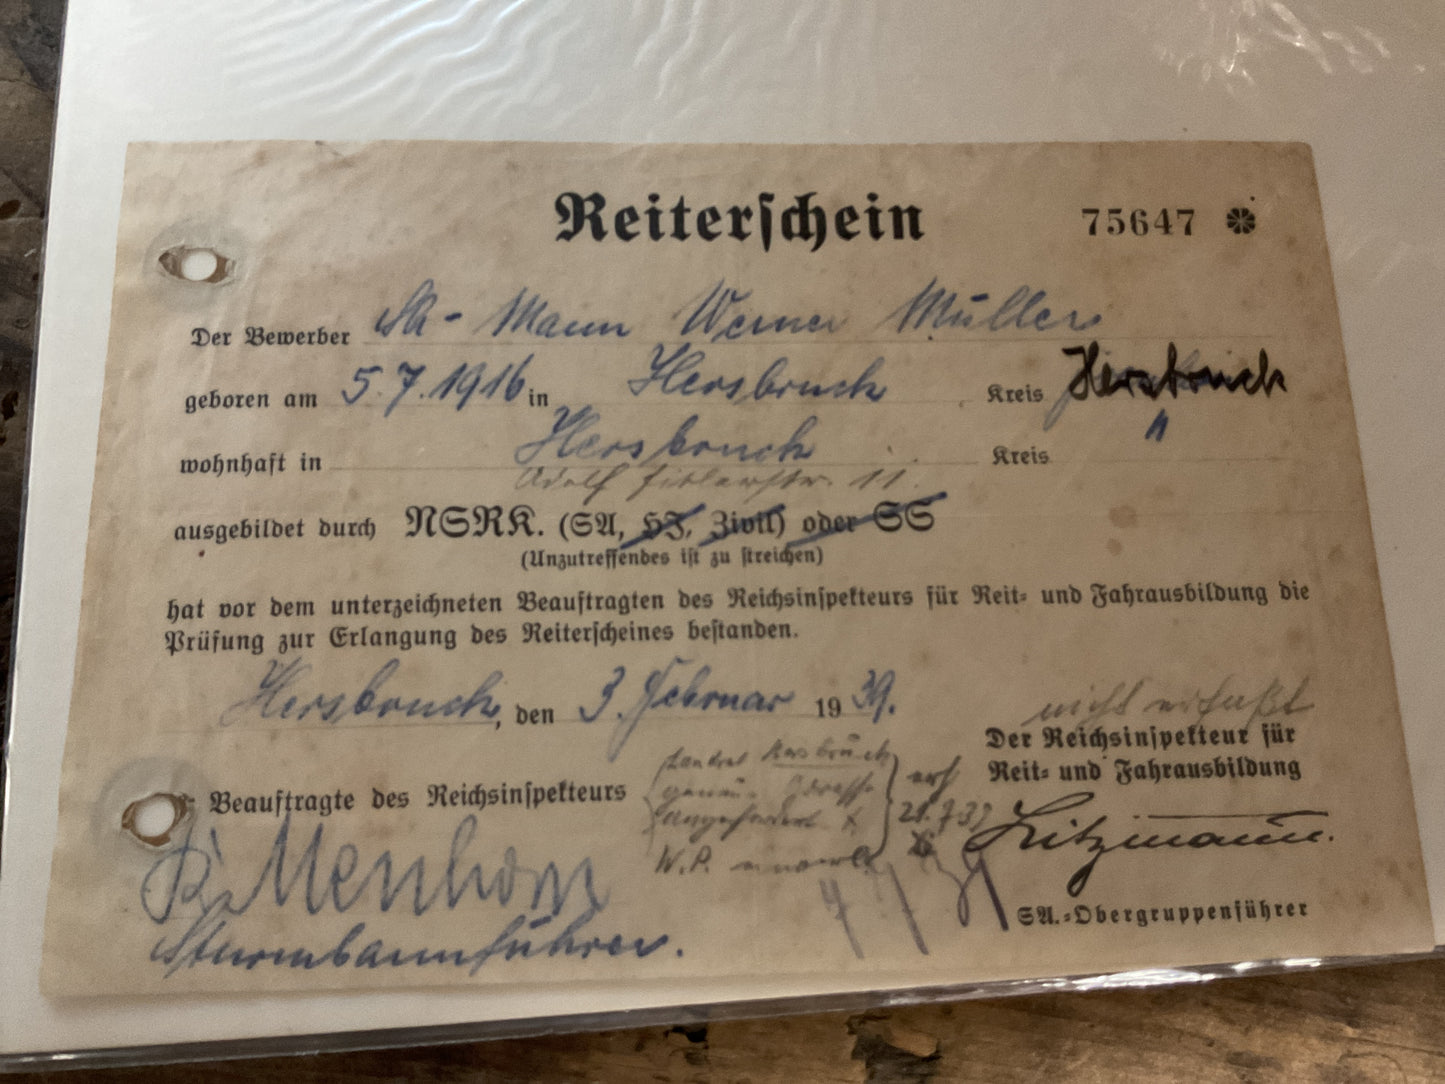 Reiterschein 75647
Der Bewerber SA-Mann Werner Müller
geboren am 5.7.1916 in Hersbruck Kreis Hersbruck
wohnhaft in Hersbruck Kreis "
Adolf Hitlerstr. 11.
ausgebildet durch NSRK. (SA, HJ, Zivil) oder SS
(Unzutreffendes ist zu streichen)
hat vor dem unterzeichneten Beauftragten des Reichsinspekteurs für Reit- und Fahrausbildung die
Prüfung zur Erlangung des Reiterscheines bestanden.
Hersbruck, den 3. Februar 1939.
nicht erfaßt
Der Reichsinspekteur für
Reit- und Fahrausbildung
Beauftragte des Reichsinspekteurs
Landrat Hersbruck
Adresse
angefordert
W.P.
erf
Litzmann.
SA.-Obergruppenführer
Sturmbannführer.